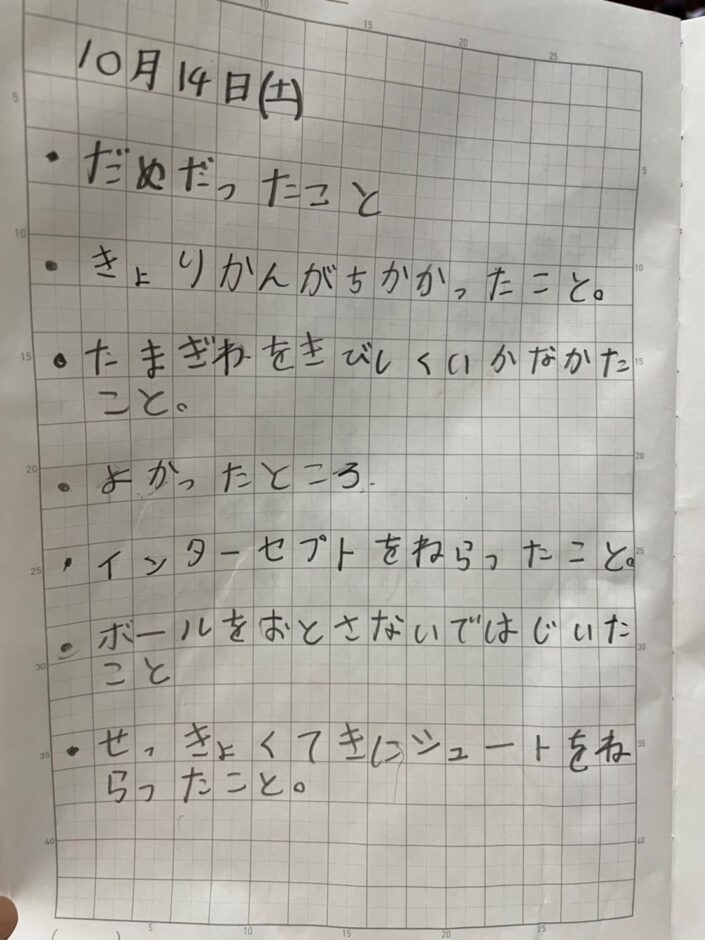 10月14日(土)
・だめだったこと
・きょりかんがちかかったこと。
・たまぎわをきびしくいかなかた
こと。
・よかったところ.
・インターセプトをねらったこと。
・ボールをおとさないではじいた
こと
・せっきょくてきにシュートをね
らったこと。